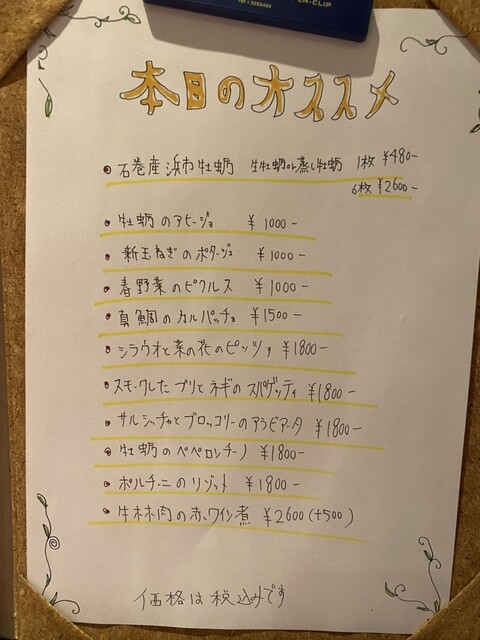 本日のオススメ
石巻産浜市牡蛎 生牡蛎or蒸し牡蛎 1枚 ¥480-
6枚 ¥2600-
牡蛎のアヒージョ ¥1000-
新玉ねぎのポタージュ ¥1000-
春野菜のピクルス ¥1000-
真鯛のカルパッチョ ¥1500-
シラウオと菜の花のピッツァ ¥1800-
スモークしたブリとネギのスパゲッティ ¥1800-
サルシッチャとブロッコリーのアラビアータ ¥1800-
牡蛎のペペロンチーノ ¥1800-
ポルチーニのリゾット ¥1800-
牛ホホ肉の赤ワイン煮 ¥2600(+500)
価格は税込みです